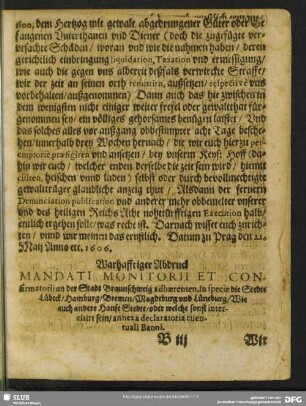 son, dem Hertzog mit gewalt abgedrungener Güter oder Ge-
fangenen Unterthanen und Diener (doch die zugefügte ver-
ursachte Schäden / woran und wie die nahmen haben / deren
gerichtlich einbringung liquidation, Taxation und ermessigung /
wie auch die gegen uns allbereit deßfals verwirckte Straffe /
wie der zeit an seinen orth remittirn, außsetzen / respectivè vns
vorbehalten / außgenommen) Dann auch das sie zwischen in
dem wenigsten nicht einiger weiter frefel oder gewalthat für-
genommen sey / ein völliges gehorsames benügen laistet / Und
das solches alles vor außgang obbestimpter acht Tage besche-
hen / innerhalb drey Wochen hernach / die wir euch hierzu per-
emptoriè præfigiren vnd ansetzen / bey unserm Keys: Hoff (da-
hin wir euch / welcher enden derselbe die zeit sein wird / hiemit
citiren, heischen vnnd laden) selbst oder durch bevollmechtigte
gewalttrӓger glaubliche anzeig thut / Alsdann der fernern
Denunciation publication vnd anderer mehr obbemelter unserer
vnd des heiligen Reichs Acht nohtürfftigen Execution halb /
entlich ergehen solle / was recht ist. Darnach wisset euch zurich-
ten / vnnd wir meinen das ernstlich. Datum zu Prag den 22.
Maij Anno ett. 1606.
Warhaffiger Abdruck
MANDATI MONITORII ET CON-
firmatorii an der Stadt Braunschweig adhærenten, in specie die Stedte
Lübeck / Hamburg / Bremen / Magdeburg vnd Lüneburg / Wie
auch andere Hanse Stedte / oder welche sonst inter-
essirt sein / annexa declaratoria euen-
tuali Banni.
B iij Wir